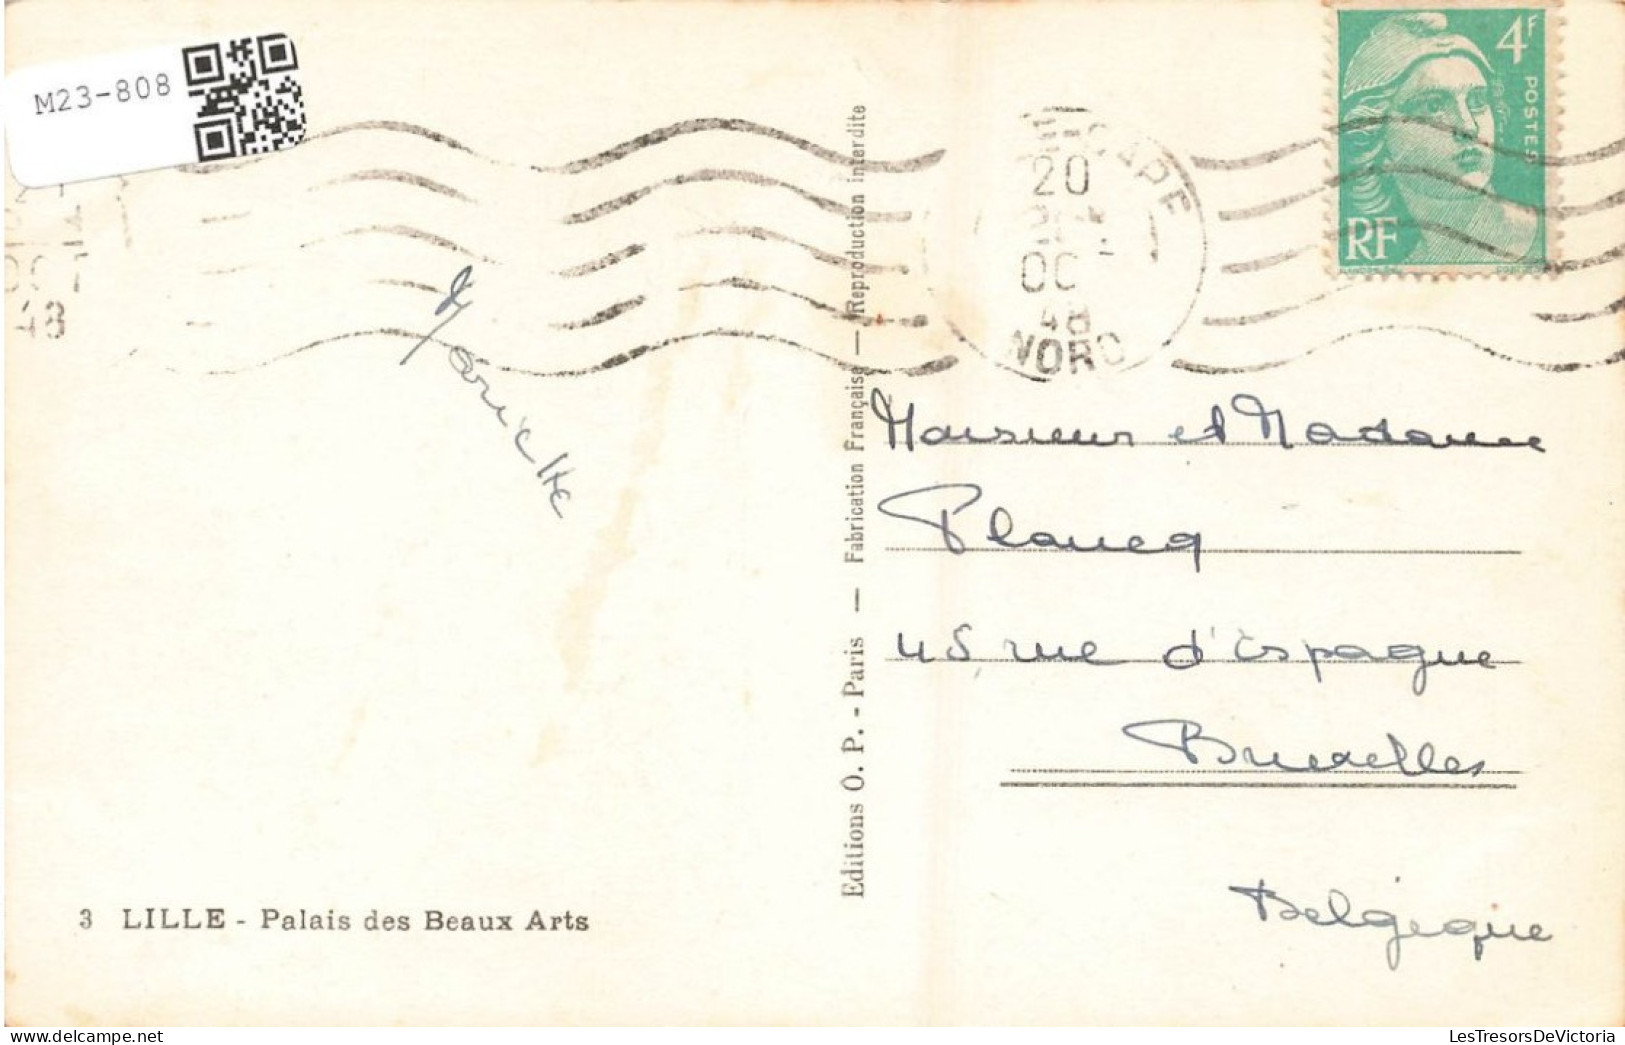 M23-808
4F
POSTES
RF
20
OC
48
NORD
48
Mariette
Monsieur et Madame
Plancq
45 rue d'Espagne
Bruxelles
Belgique
Editions O. P. - Paris — Fabrication Française — Reproduction interdite
3 LILLE - Palais des Beaux Arts
LesTresorsDeVictoria